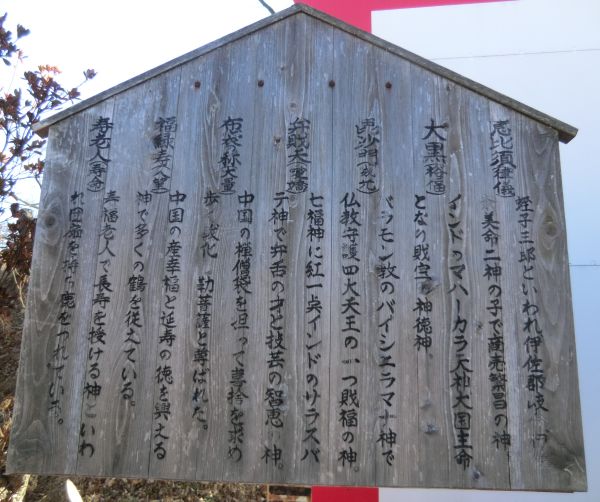 恵比須(律儀)
蛭子三郎といわれ伊佐那岐
美命二神の子で商売繁昌の神。
大黒(裕福)
インドのマハーカラ天神大国主命
となり財宝の神徳神。
毘沙門(威光)
バラモン教のバイシュラマナ神で
仏教守護四大天王の一つ財福の神。
弁財天(愛嬌)
七福神に紅一点インドのサラスバ
テ神で弁舌の才と技芸の智恵の神。
布袋称(大量)
中国の禅僧袋を担って喜捨を求め
歩く 化 勒菩薩と尊ばれた。
福禄寿(人望)
中国の産幸福と延寿の徳を與える
神で多くの鶴を従えている。
寿老人(寿命)
寿福老人で長寿を授ける神といわ
れ団扇を持ち鹿をつれています。